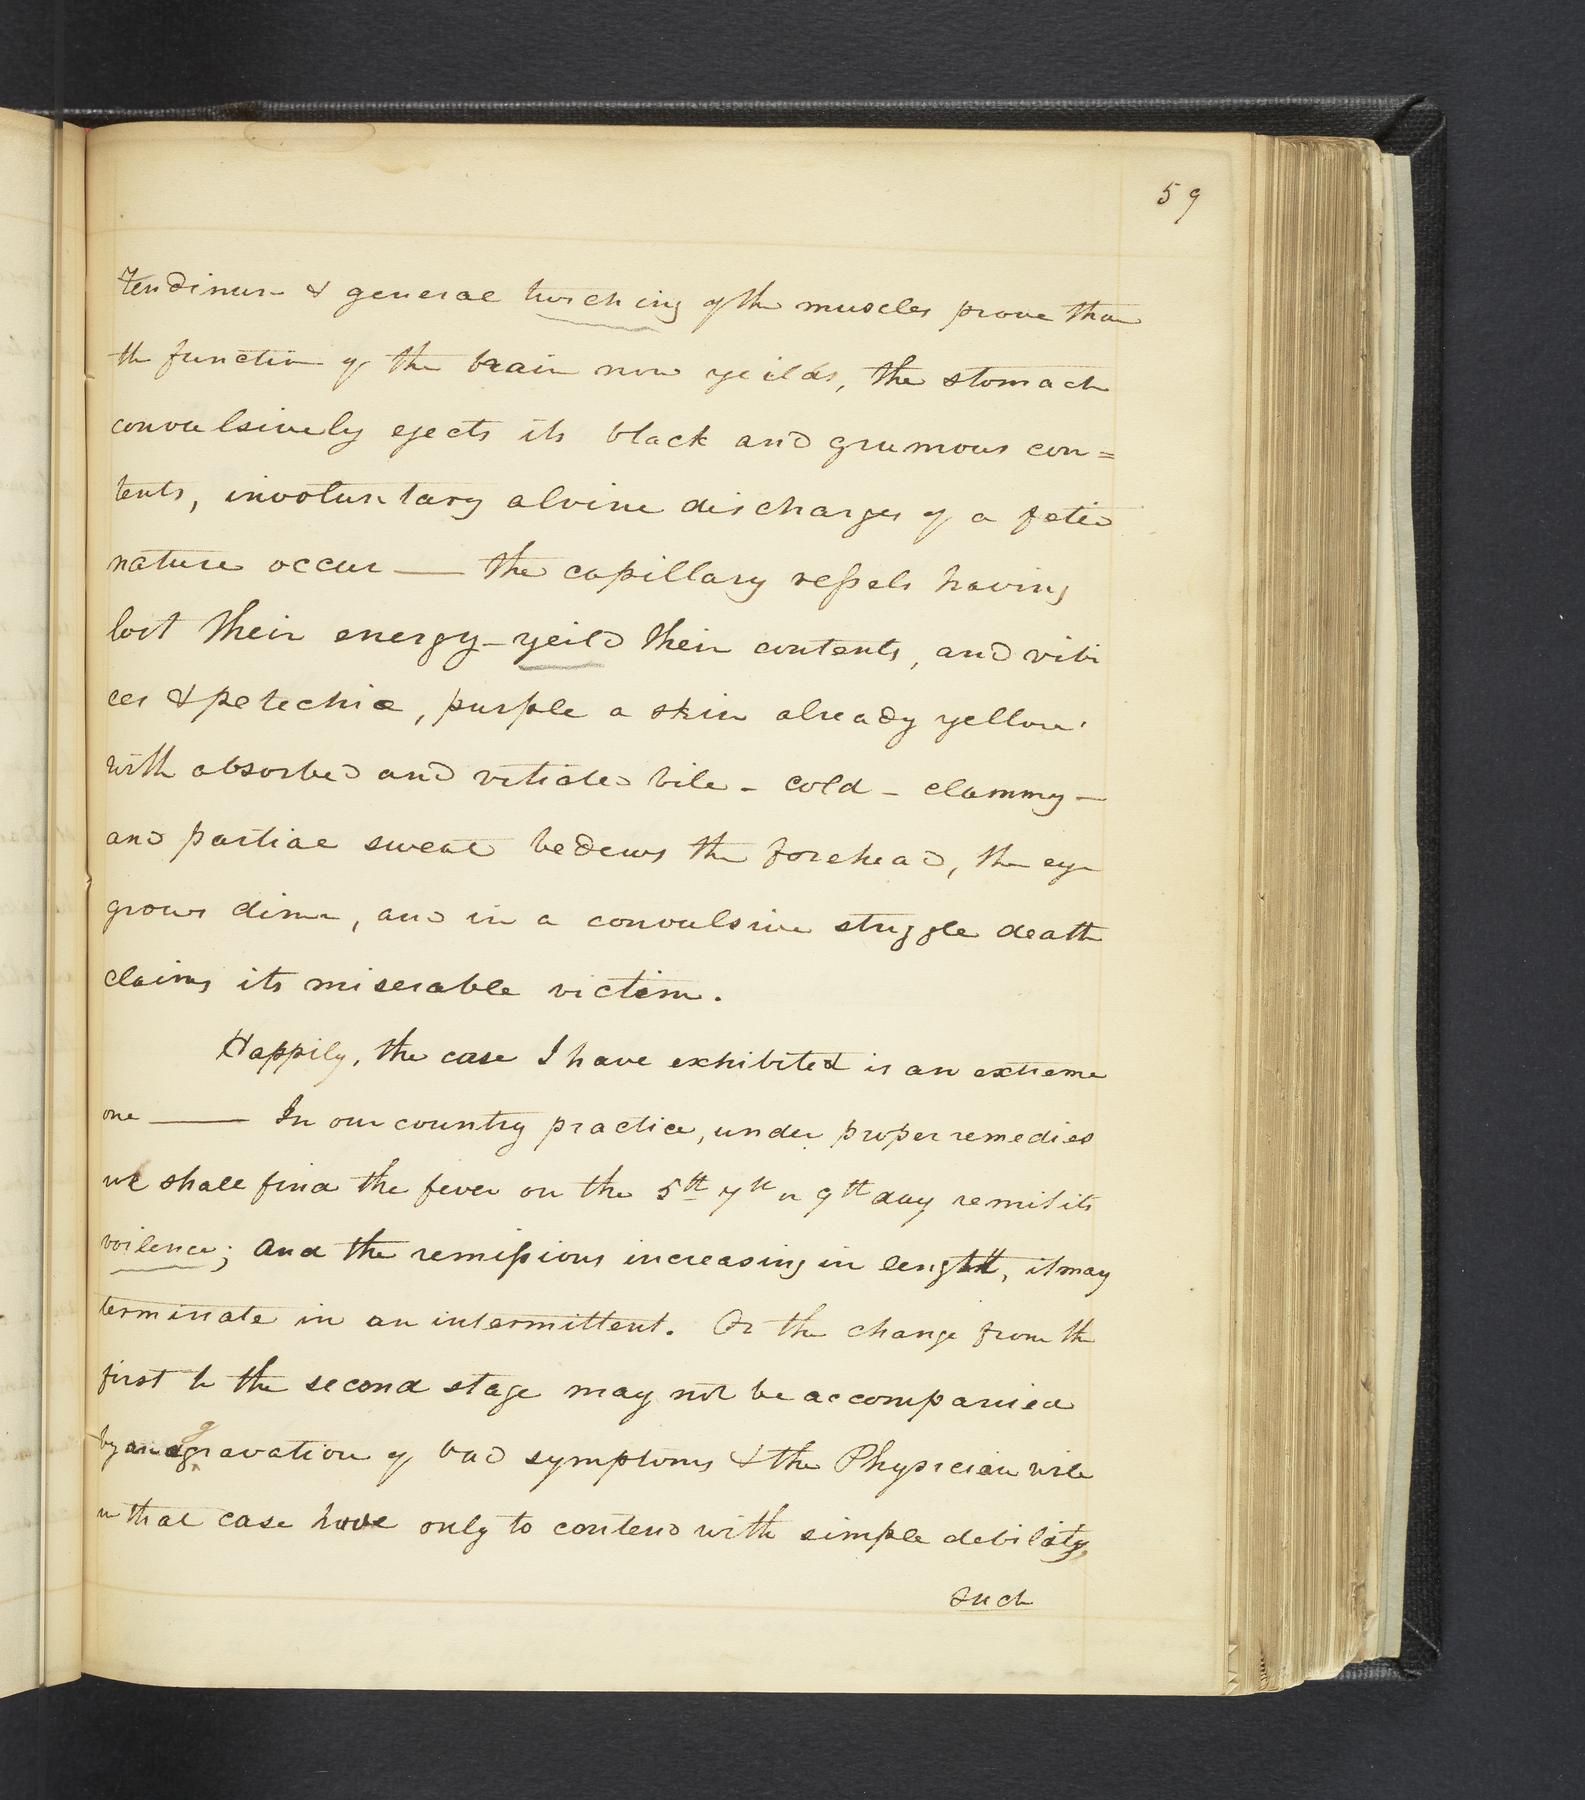 59
tendinum & general twiching of the muscles prove that
the function of the brain now yeilds, the stomach
convulsively ejects its black and grumous con=
tents, involuntary alvine discharges of a fetid
nature occur — the capillary vessels having
lost their energy - yeild their contents, and vibi
ces & petechiæ, purple a skin already yellow
with absorbed and vitiated bile - cold - clammy -
and partial sweat bedews the forehead, the eye
grows dim, and in a convulsive struggle death
claims its miserable victim.
Happily, the case I have exhibited is an extreme
one — In our country practice, under proper remedies
we shall find the fever on the 5th 7th or 9th day remit its
voilence; and the remissions increasing in length, it may
terminate in an intermittent. Or the change from the
first to the second stage may not be accompanied
by an aggravation of bad symptoms & the Physician will
in that case have only to contend with simple debility,
such